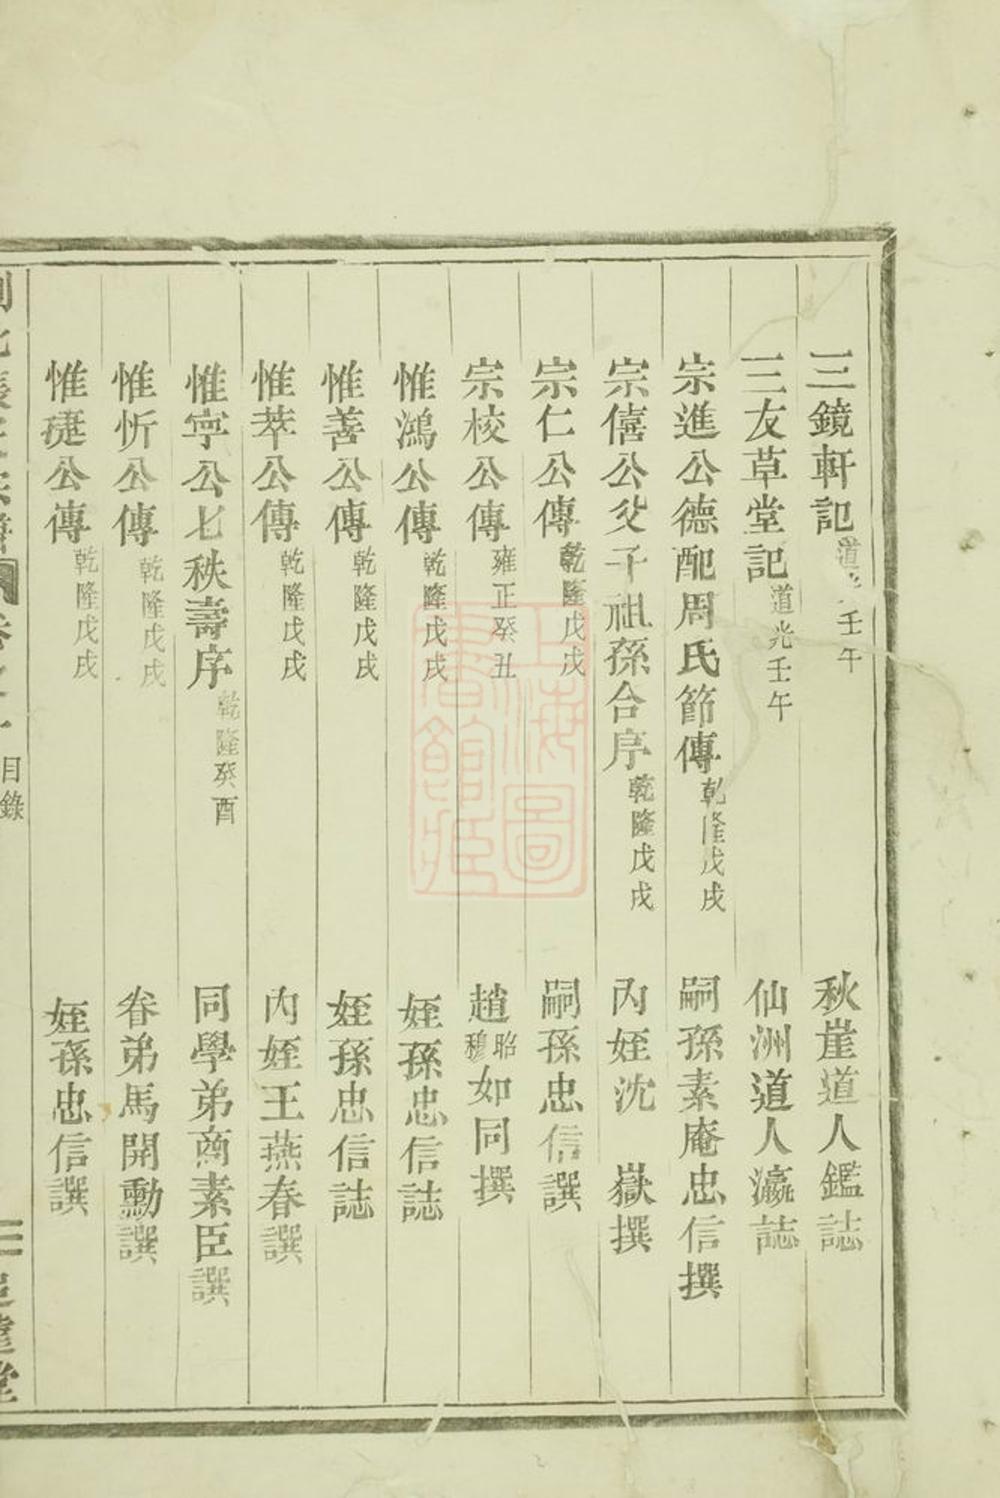 三鏡軒記 道光壬午 秋崖道人鑑誌
三友草堂記 道光壬午 仙洲道人瀛誌
宗進公德配周氏節傳 乾隆戊戌 嗣孫素庵忠信撰
宗僖公父子祖孫合序 乾隆戊戌 內姪沈 嶽撰
宗仁公傳 乾隆戊戌 嗣孫忠信譔
宗校公傳 雍正癸丑 趙昭穆如同撰
惟鴻公傳 乾隆戊戌 姪孫忠信誌
惟善公傳 乾隆戊戌 姪孫忠信誌
惟萃公傳 乾隆戊戌 內姪王燕春譔
惟寧公七秩壽序 乾隆癸酉 同學弟商素臣譔
惟忻公傳 乾隆戊戌 眷弟馬開勳譔
惟㨗公傳 乾隆戊戌 姪孫忠信譔
目錄
上海圖書館藏